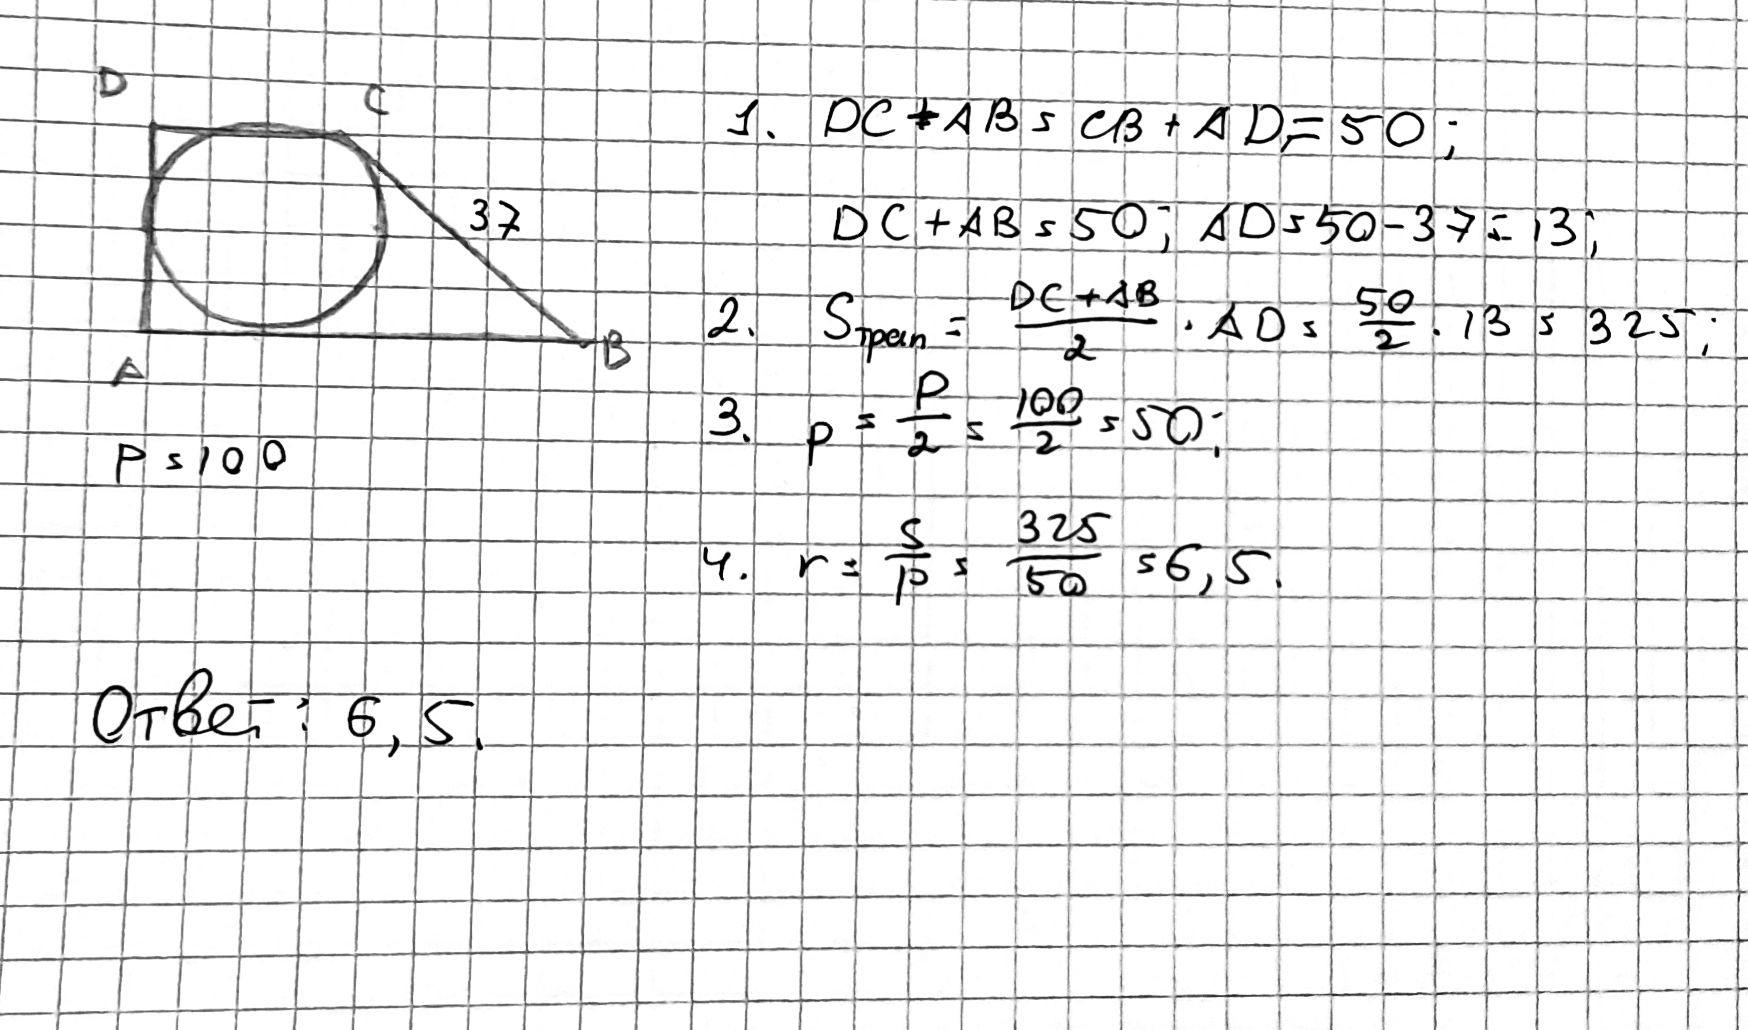 D C
37
A B
P = 100
1. DC + AB = CB + AD = 50;
DC + AB = 50; AD = 50 - 37 = 13;
2. Sтрап = (DC + AB)/2 · AD = 50/2 · 13 = 325;
3. p = P/2 = 100/2 = 50;
4. r = S/p = 325/50 = 6,5.
Ответ: 6,5.